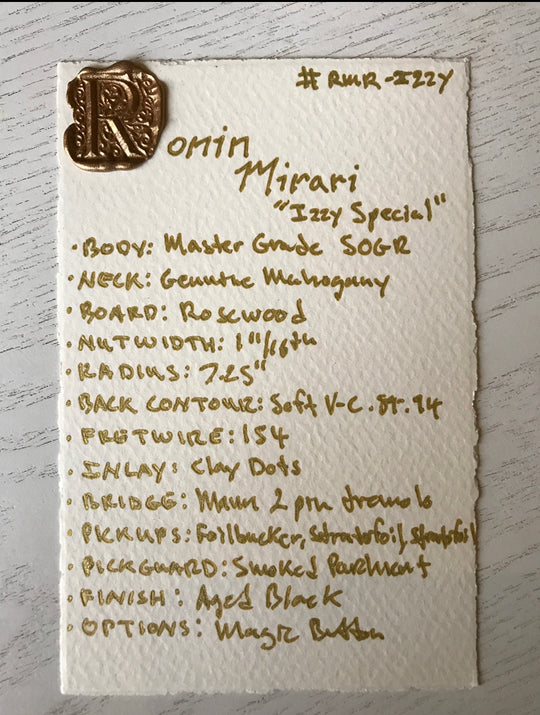 # RMR-IZZY
Romin
Mirari
"Izzy Special"
• BODY: Master Grade SOGR
• NECK: Genuine Mahogany
• BOARD: Rosewood
• NUTWIDTH: 1"/16th
• RADIUS: 7.25"
• BACK CONTOUR: Soft V-C .87-.94
• FRETWIRE: 154
• INLAY: Clay Dots
• BRIDGE: Mann 2 pin tremolo
• PICKUPS: Foilbucker, Stratofoil, Stratofoil
• PICKGUARD: Smoked Parchment
• FINISH: Aged Black
• OPTIONS: Magic Button